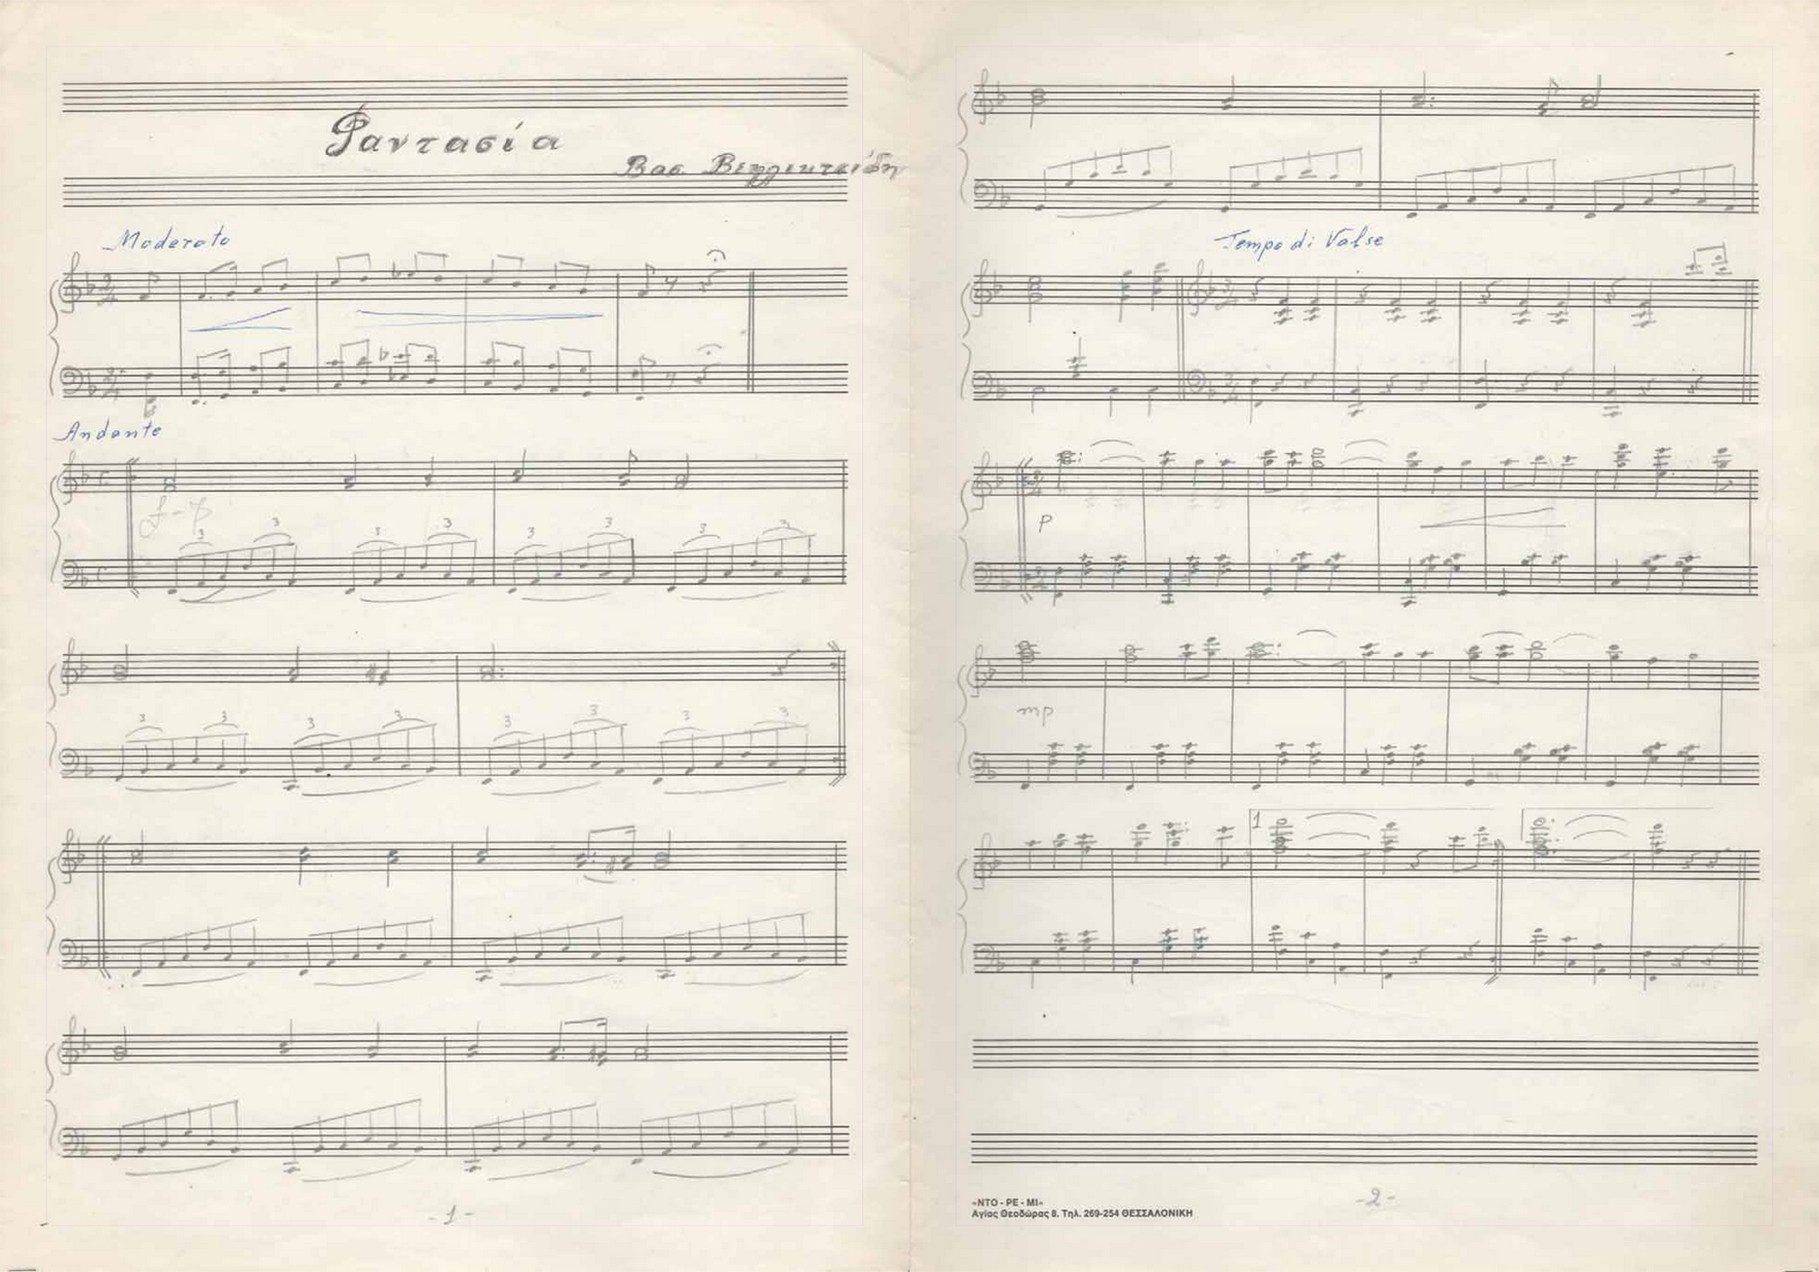 Φαντασία
Βασ.
Moderato
2/4
Andante
f-p
3 3 3 3 3 3 3 3
3 3 3 3 3 3 3 3
-1-
Tempo di Valse
3/4
p
mp
1
«ΝΤΟ - ΡΕ - ΜΙ»
Αγίας Θεοδώρας 8. Τηλ. 269-254 ΘΕΣΣΑΛΟΝΙΚΗ
-2-